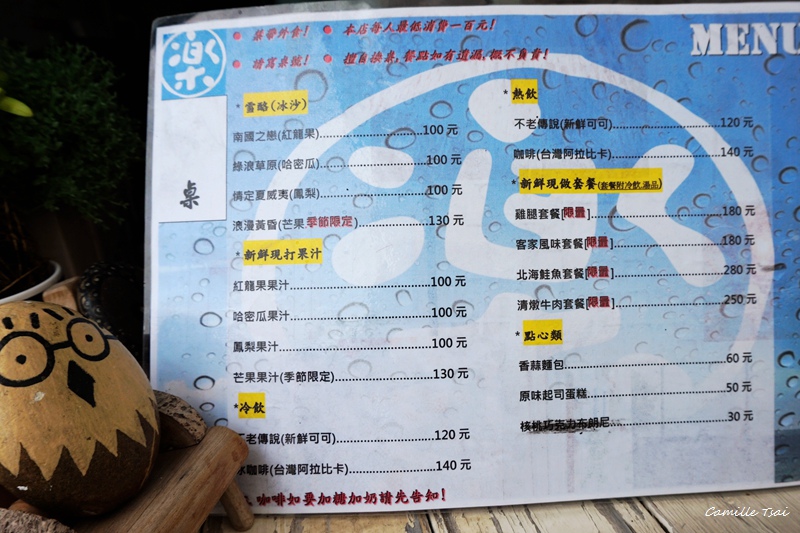 楽
● 禁帶外食! ● 本店每人最低消費一百元!
● 請寫桌號! ● 擅自換桌,餐點如有遺漏,概不負責!
MENU
桌
*雪酪(冰沙)
南國之戀(紅龍果)..........100 元
綠浪草原(哈密瓜)..........100 元
情定夏威夷(鳳梨)..........100 元
浪漫黃昏(芒果 季節限定)..........130 元
*新鮮現打果汁
紅龍果果汁..........100 元
哈密瓜果汁..........100 元
鳳梨果汁..........100 元
芒果果汁(季節限定)..........130 元
*冷飲
不老傳說(新鮮可可)..........120 元
冰咖啡(台灣阿拉比卡)..........140 元
咖啡如要加糖加奶請先告知!
*熱飲
不老傳說(新鮮可可)..........120 元
咖啡(台灣阿拉比卡)..........140 元
*新鮮現做套餐(套餐附冷飲.湯品)
雞腿套餐[限量]..........180 元
客家風味套餐[限量]..........180 元
北海鮭魚套餐[限量]..........280 元
清燉牛肉套餐[限量]..........250 元
*點心類
香蒜麵包..........60 元
原味起司蛋糕..........50 元
核桃巧克力布朗尼..........30 元
Camille Tsai